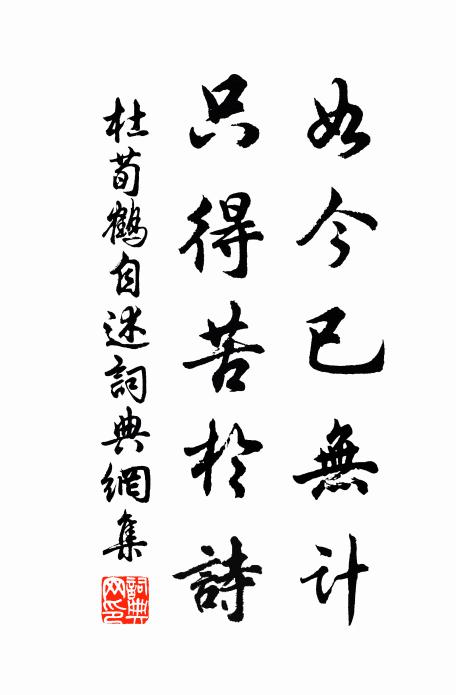 如今已無計
只得苦於詩
杜荀鶴自述詞典網集
詞典網印